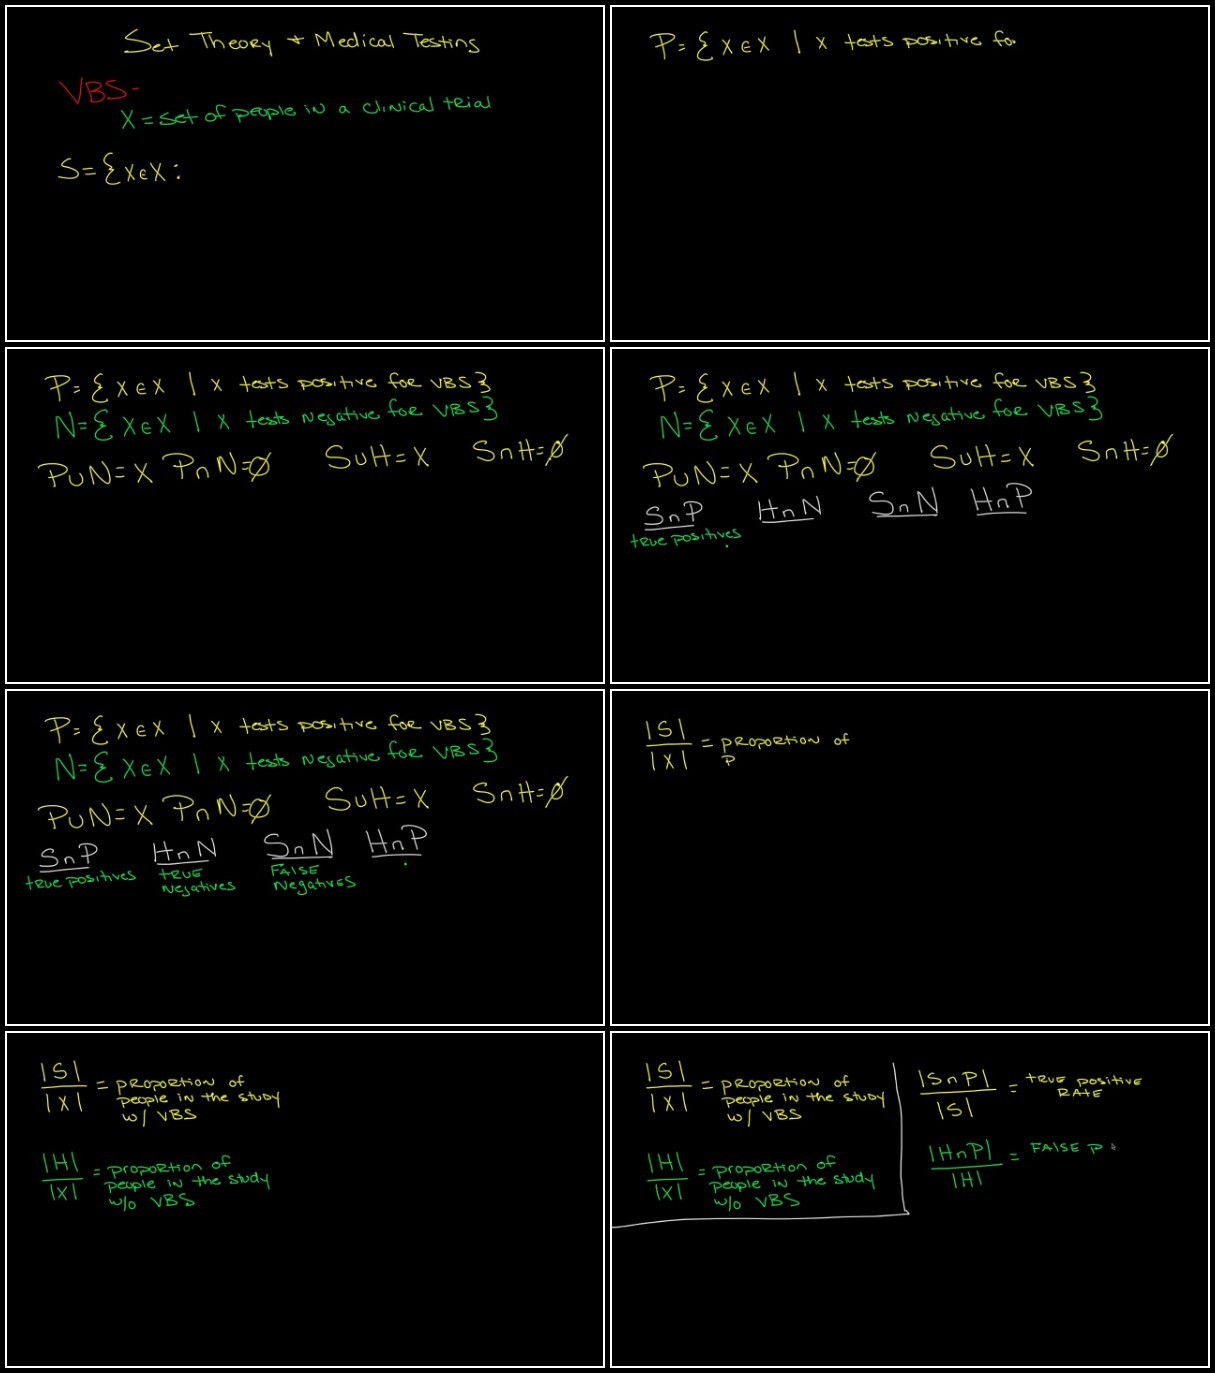 Set Theory + Medical Testing
VBS-
X = set of people in a clinical trial
S={x∈X :
P={ x∈X | x tests positive fo
P={ x∈X | x tests positive for VBS}
N={ x∈X | x tests negative for VBS}
P∪N=X P∩N=∅ S∪H=X S∩H=∅
P={ x∈X | x tests positive for VBS}
N={ x∈X | x tests negative for VBS}
P∪N=X P∩N=∅ S∪H=X S∩H=∅
S∩P H∩N S∩N H∩P
true positives
P={ x∈X | x tests positive for VBS}
N={ x∈X | x tests negative for VBS}
P∪N=X P∩N=∅ S∪H=X S∩H=∅
S∩P H∩N S∩N H∩P
true positives true negatives False negatives
|S|/|X| = proportion of
p
|S|/|X| = proportion of
people in the study
w/ VBS
|H|/|X| = proportion of
people in the study
w/o VBS
|S|/|X| = proportion of
people in the study
w/ VBS
|H|/|X| = proportion of
people in the study
w/o VBS
|S∩P|/|S| = true positive
rate
|H∩P|/|H| = False p